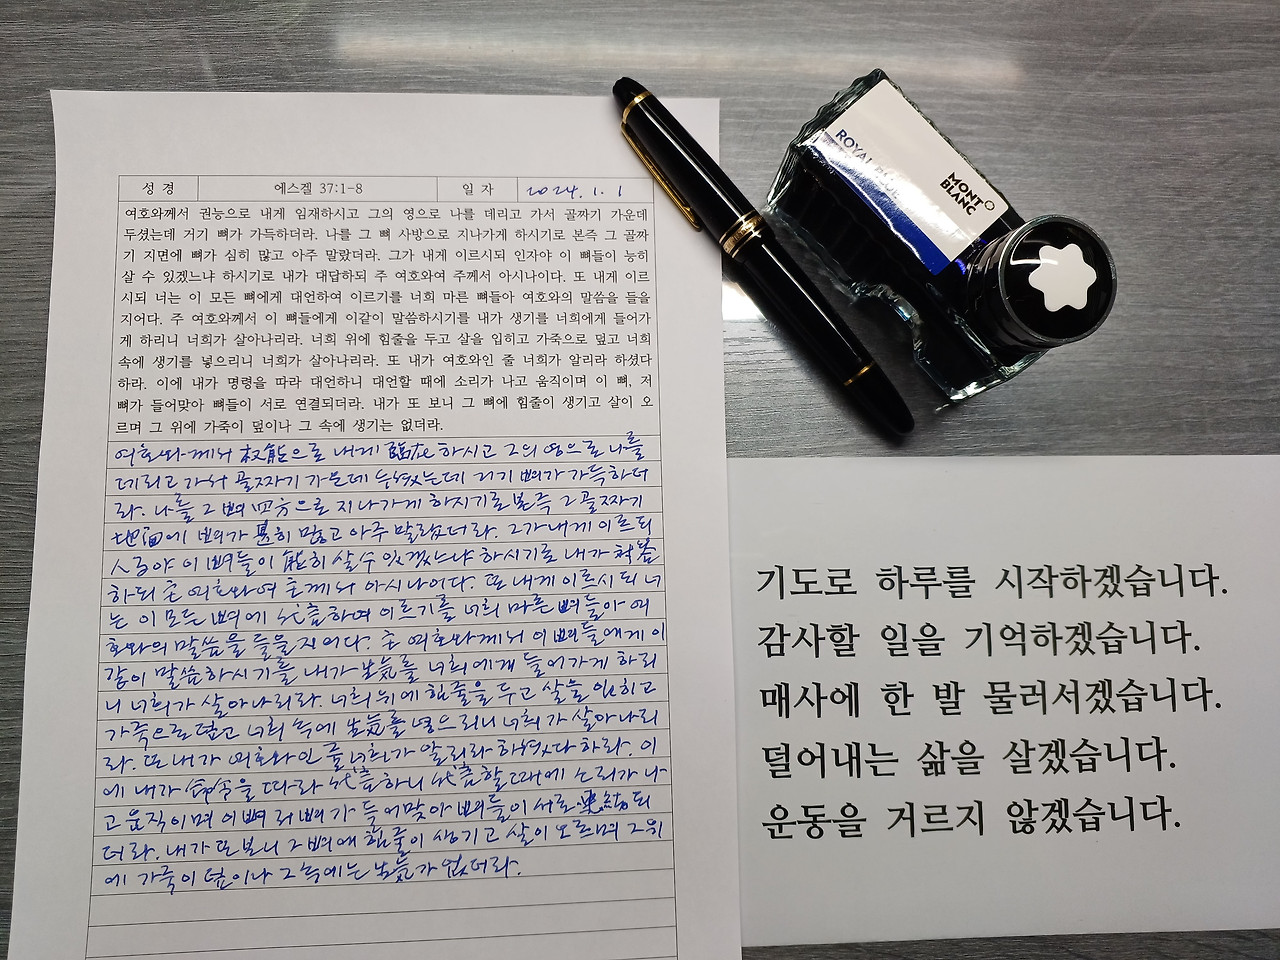 성 경 에스겔 37:1-8 일 자 2024. 1. 1
여호와께서 권능으로 내게 임재하시고 그의 영으로 나를 데리고 가서 골짜기 가운데
두셨는데 거기 뼈가 가득하더라. 나를 그 뼈 사방으로 지나가게 하시기로 본즉 그 골짜
기 지면에 뼈가 심히 많고 아주 말랐더라. 그가 내게 이르시되 인자야 이 뼈들이 능히
살 수 있겠느냐 하시기로 내가 대답하되 주 여호와여 주께서 아시나이다. 또 내게 이르
시되 너는 이 모든 뼈에게 대언하여 이르기를 너희 마른 뼈들아 여호와의 말씀을 들을
지어다. 주 여호와께서 이 뼈들에게 이같이 말씀하시기를 내가 생기를 너희에게 들어가
게 하리니 너희가 살아나리라. 너희 위에 힘줄을 두고 살을 입히고 가죽으로 덮고 너희
속에 생기를 넣으리니 너희가 살아나리라. 또 내가 여호와인 줄 너희가 알리라 하셨다
하라. 이에 내가 명령을 따라 대언하니 대언할 때에 소리가 나고 움직이며 이 뼈, 저
뼈가 들어맞아 뼈들이 서로 연결되더라. 내가 또 보니 그 뼈에 힘줄이 생기고 살이 오
르며 그 위에 가죽이 덮이나 그 속에 생기는 없더라.
여호와께서 權能으로 내게 臨在하시고 그의 영으로 나를
데리고 가서 골짜기 가운데 두셨는데 거기 뼈가 가득하더
라. 나를 그 뼈 四方으로 지나가게 하시기로 본즉 그 골짜기
地面에 뼈가 甚히 많고 아주 말랐더라. 그가 내게 이르되
人子야 이 뼈들이 能히 살 수 있겠느냐 하시기로 내가 對答
하되 주 여호와여 주께서 아시나이다. 또 내게 이르시되 너
는 이 모든 뼈에 代言하여 이르기를 너희 마른 뼈들아 여
호와의 말씀을 들을지어다. 주 여호와께서 이 뼈들에게 이
같이 말씀하시기를 내가 生氣를 너희에게 들어가게 하리
니 너희가 살아나리라. 너희 위에 힘줄을 두고 살을 입히고
가죽으로 덮고 너희 속에 生氣를 넣으리니 너희가 살아나리
라. 또 내가 여호와인 줄 너희가 알리라 하셨다 하라. 이
에 내가 命令을 따라 代言하니 代言할 때에 소리가 나
고 움직이며 이 뼈 저 뼈가 들어맞아 뼈들이 서로 連結되
더라. 내가 또 보니 그 뼈에 힘줄이 생기고 살이 오르며 그 위
에 가죽이 덮이나 그 속에는 生氣가 없더라.
ROYAL BLUE
MONT
BLANC
기도로 하루를 시작하겠습니다.
감사할 일을 기억하겠습니다.
매사에 한 발 물러서겠습니다.
덜어내는 삶을 살겠습니다.
운동을 거르지 않겠습니다.